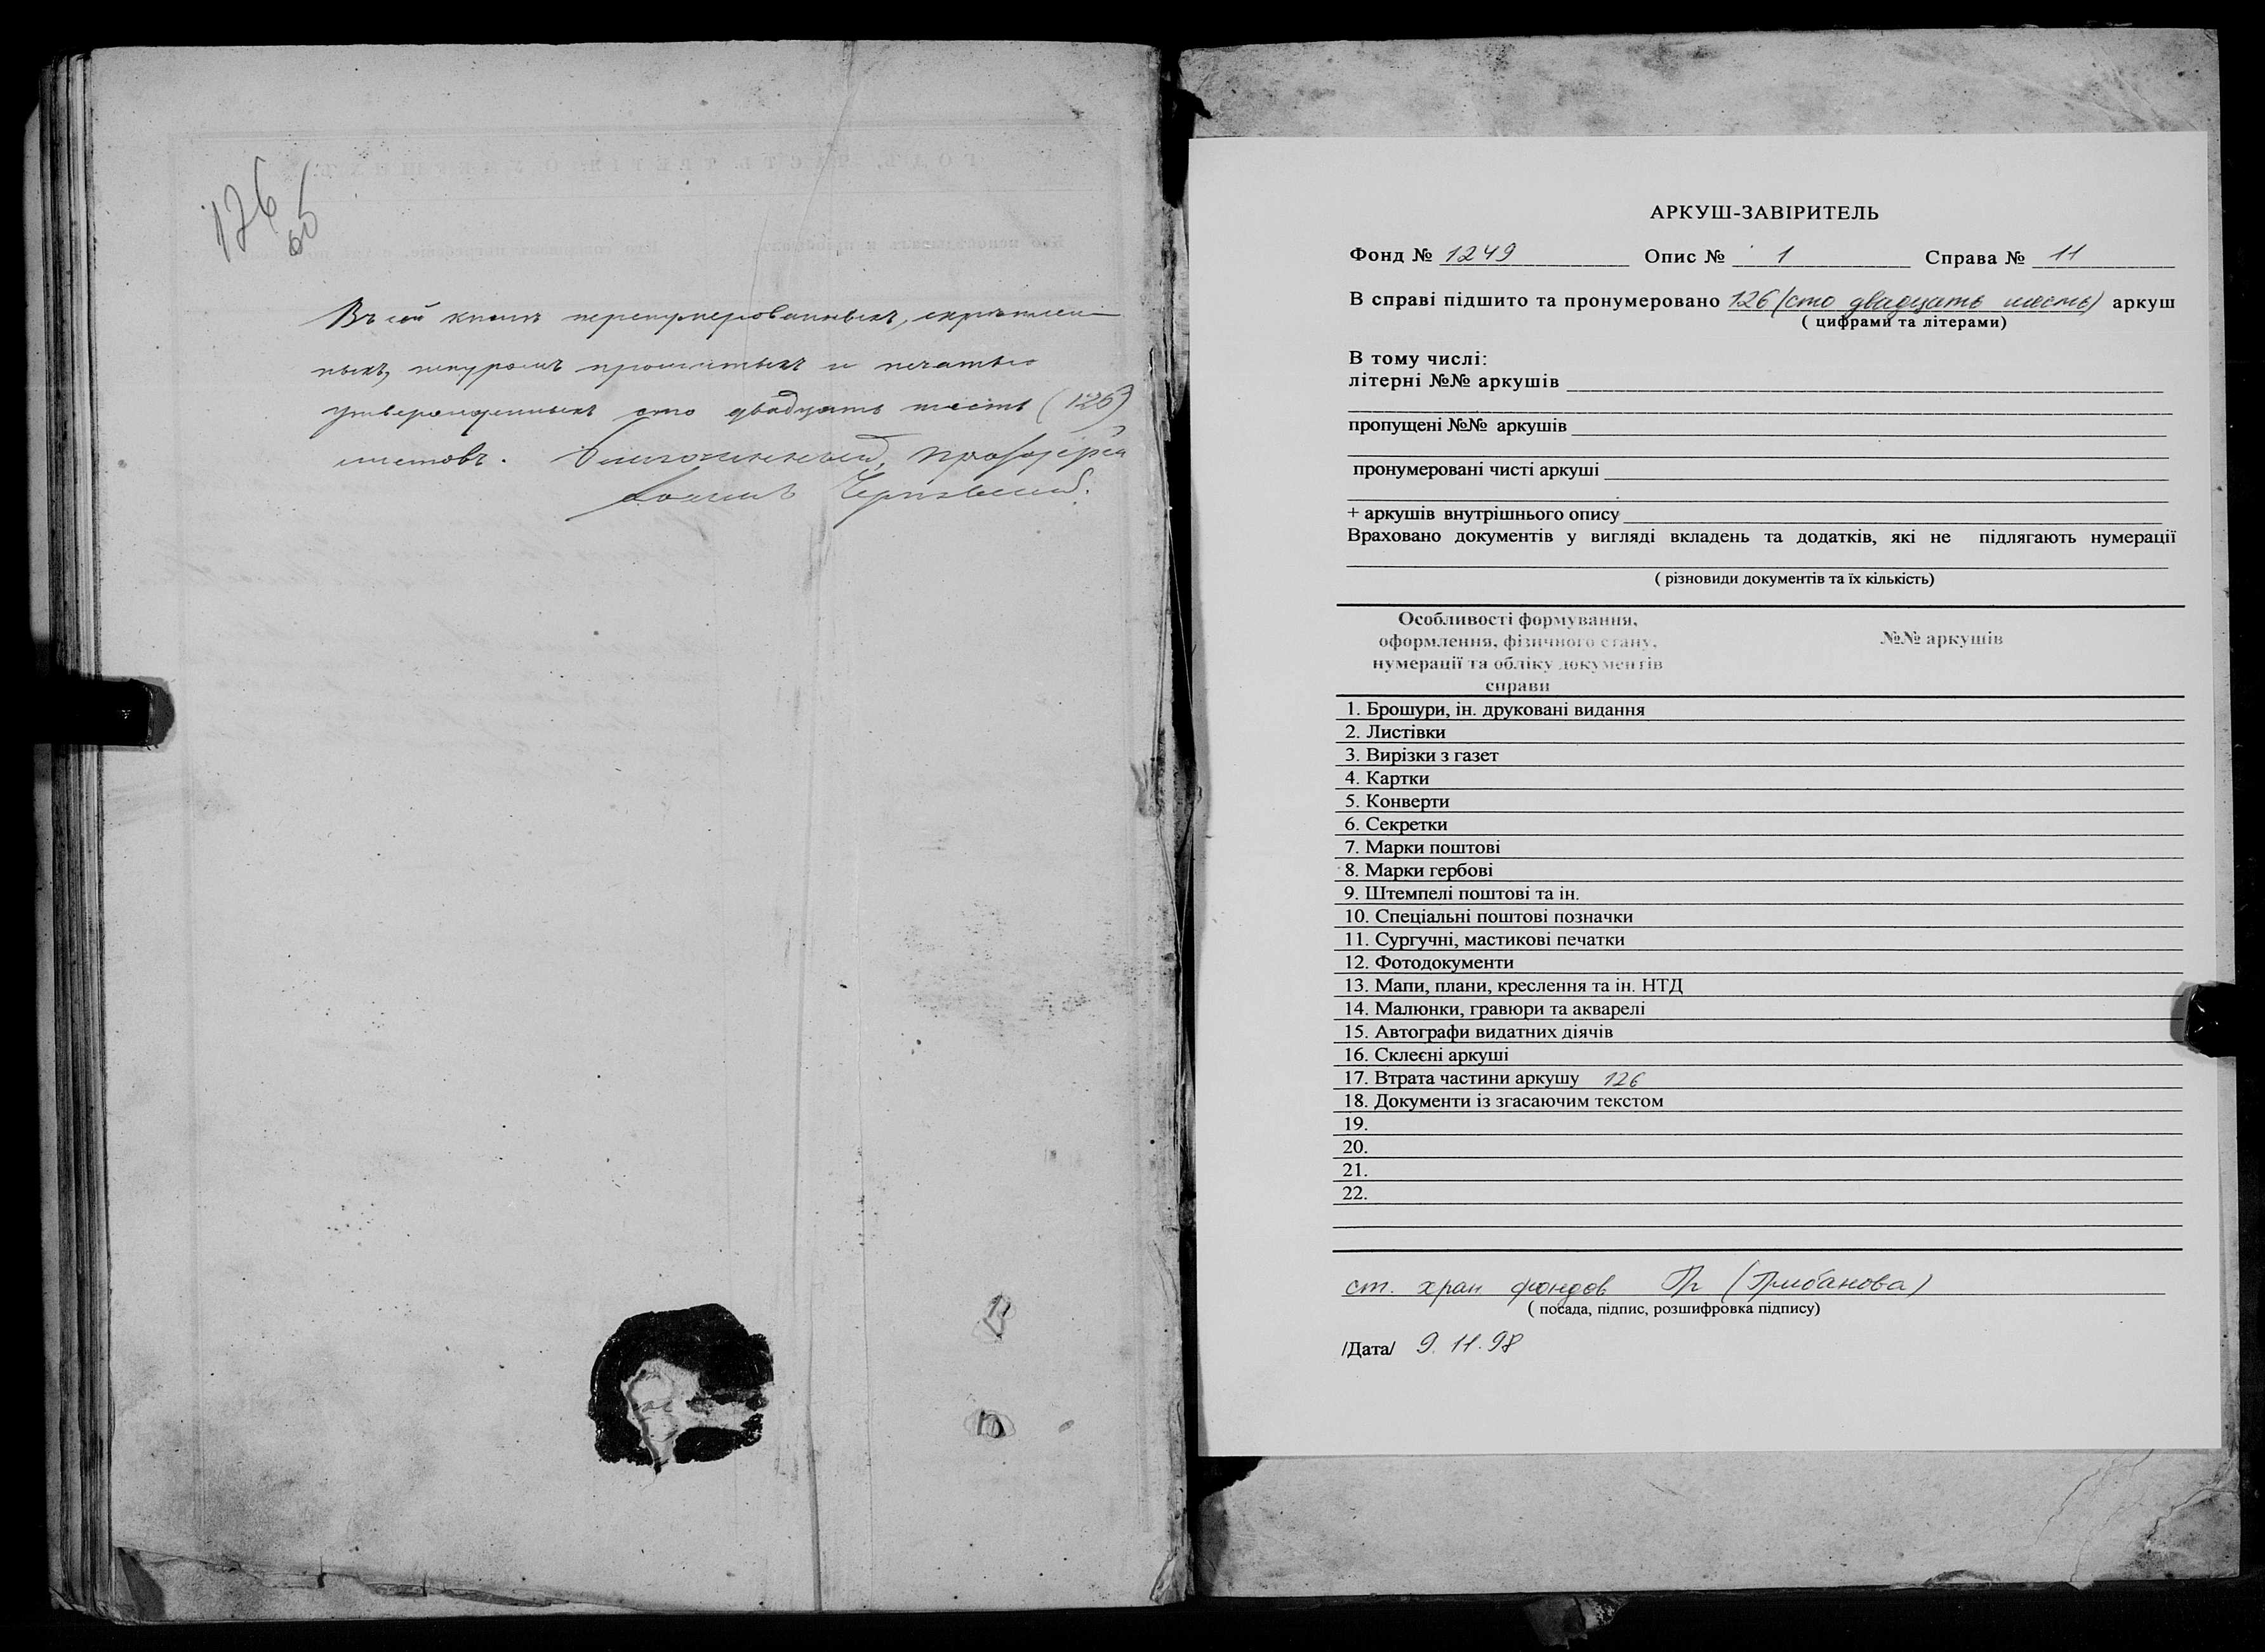 126
об
Въ сей книгѣ перенумерованныхъ, скрѣплен-
ныхъ, шнуромъ прошитыхъ и печатью
утвержденныхъ сто двадцать шесть (126)
листовъ. Благочинный, Протоіерей
АРКУШ-ЗАВІРИТЕЛЬ
Фонд № 1249 Опис № 1 Справа № 11
В справі підшито та пронумеровано 126 (сто двадцать шесть) аркуш
( цифрами та літерами)
В тому числі:
літерні №№ аркушів
пропущені №№ аркушів
пронумеровані чисті аркуші
+ аркушів внутрішнього опису
Враховано документів у вигляді вкладень та додатків, які не підлягають нумерації
( різновиди документів та їх кількість)
Особливості формування, №№ аркушів
оформлення, фізичного стану,
нумерації та обліку документів
справи
1. Брошури, ін. друковані видання
2. Листівки
3. Вирізки з газет
4. Картки
5. Конверти
6. Секретки
7. Марки поштові
8. Марки гербові
9. Штемпелі поштові та ін.
10. Спеціальні поштові позначки
11. Сургучні, мастикові печатки
12. Фотодокументи
13. Мапи, плани, креслення та ін. НТД
14. Малюнки, гравюри та акварелі
15. Автографи видатних діячів
16. Склеєні аркуші
17. Втрата частини аркушу 126
18. Документи із згасаючим текстом
19.
20.
21.
22.
ст. хран фондов Гр (Грибанова)
( посада, підпис, розшифровка підпису)
/Дата/ 9.11.98